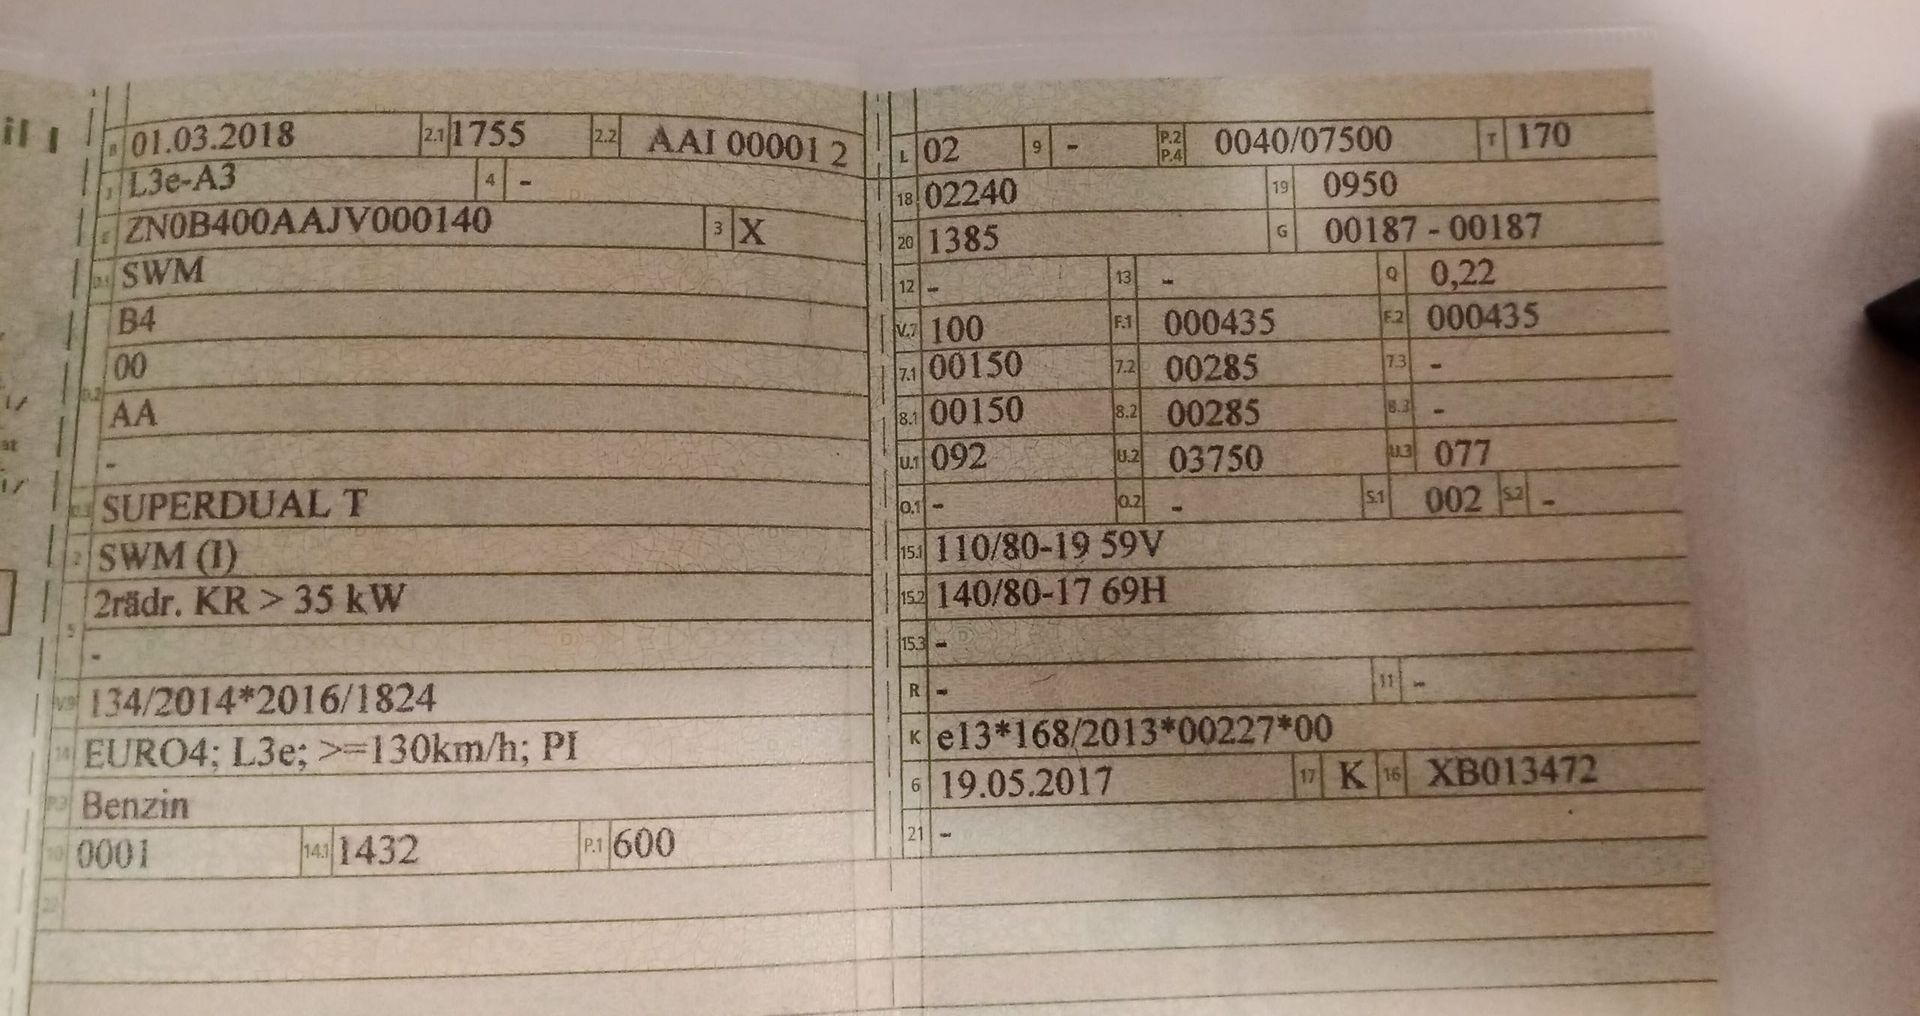 il I
B 01.03.2018 2.1 1755 2.2 AAI 00001 2
J L3e-A3 4 -
E ZN0B400AAJV000140 3 X
D.1 SWM
B4
00
D.2
AA
-
D.3 SUPERDUAL T
2 SWM (I)
2rädr. KR > 35 kW
5
-
V.9 134/2014*2016/1824
14 EURO4; L3e; >=130km/h; PI
P.3 Benzin
10 0001 14.1 1432 P.1 600
22
L 02 9 - P.2 P.4 0040/07500 T 170
18 02240 19 0950
20 1385 G 00187 - 00187
12 - 13 - Q 0,22
V.7 100 F.1 000435 F.2 000435
7.1 00150 7.2 00285 7.3 -
8.1 00150 8.2 00285 8.3 -
U.1 092 U.2 03750 U.3 077
O.1 - O.2 - S.1 002 S.2 -
15.1 110/80-19 59V
15.2 140/80-17 69H
15.3 -
R - 11 -
K e13*168/2013*00227*00
6 19.05.2017 17 K 16 XB013472
21 -